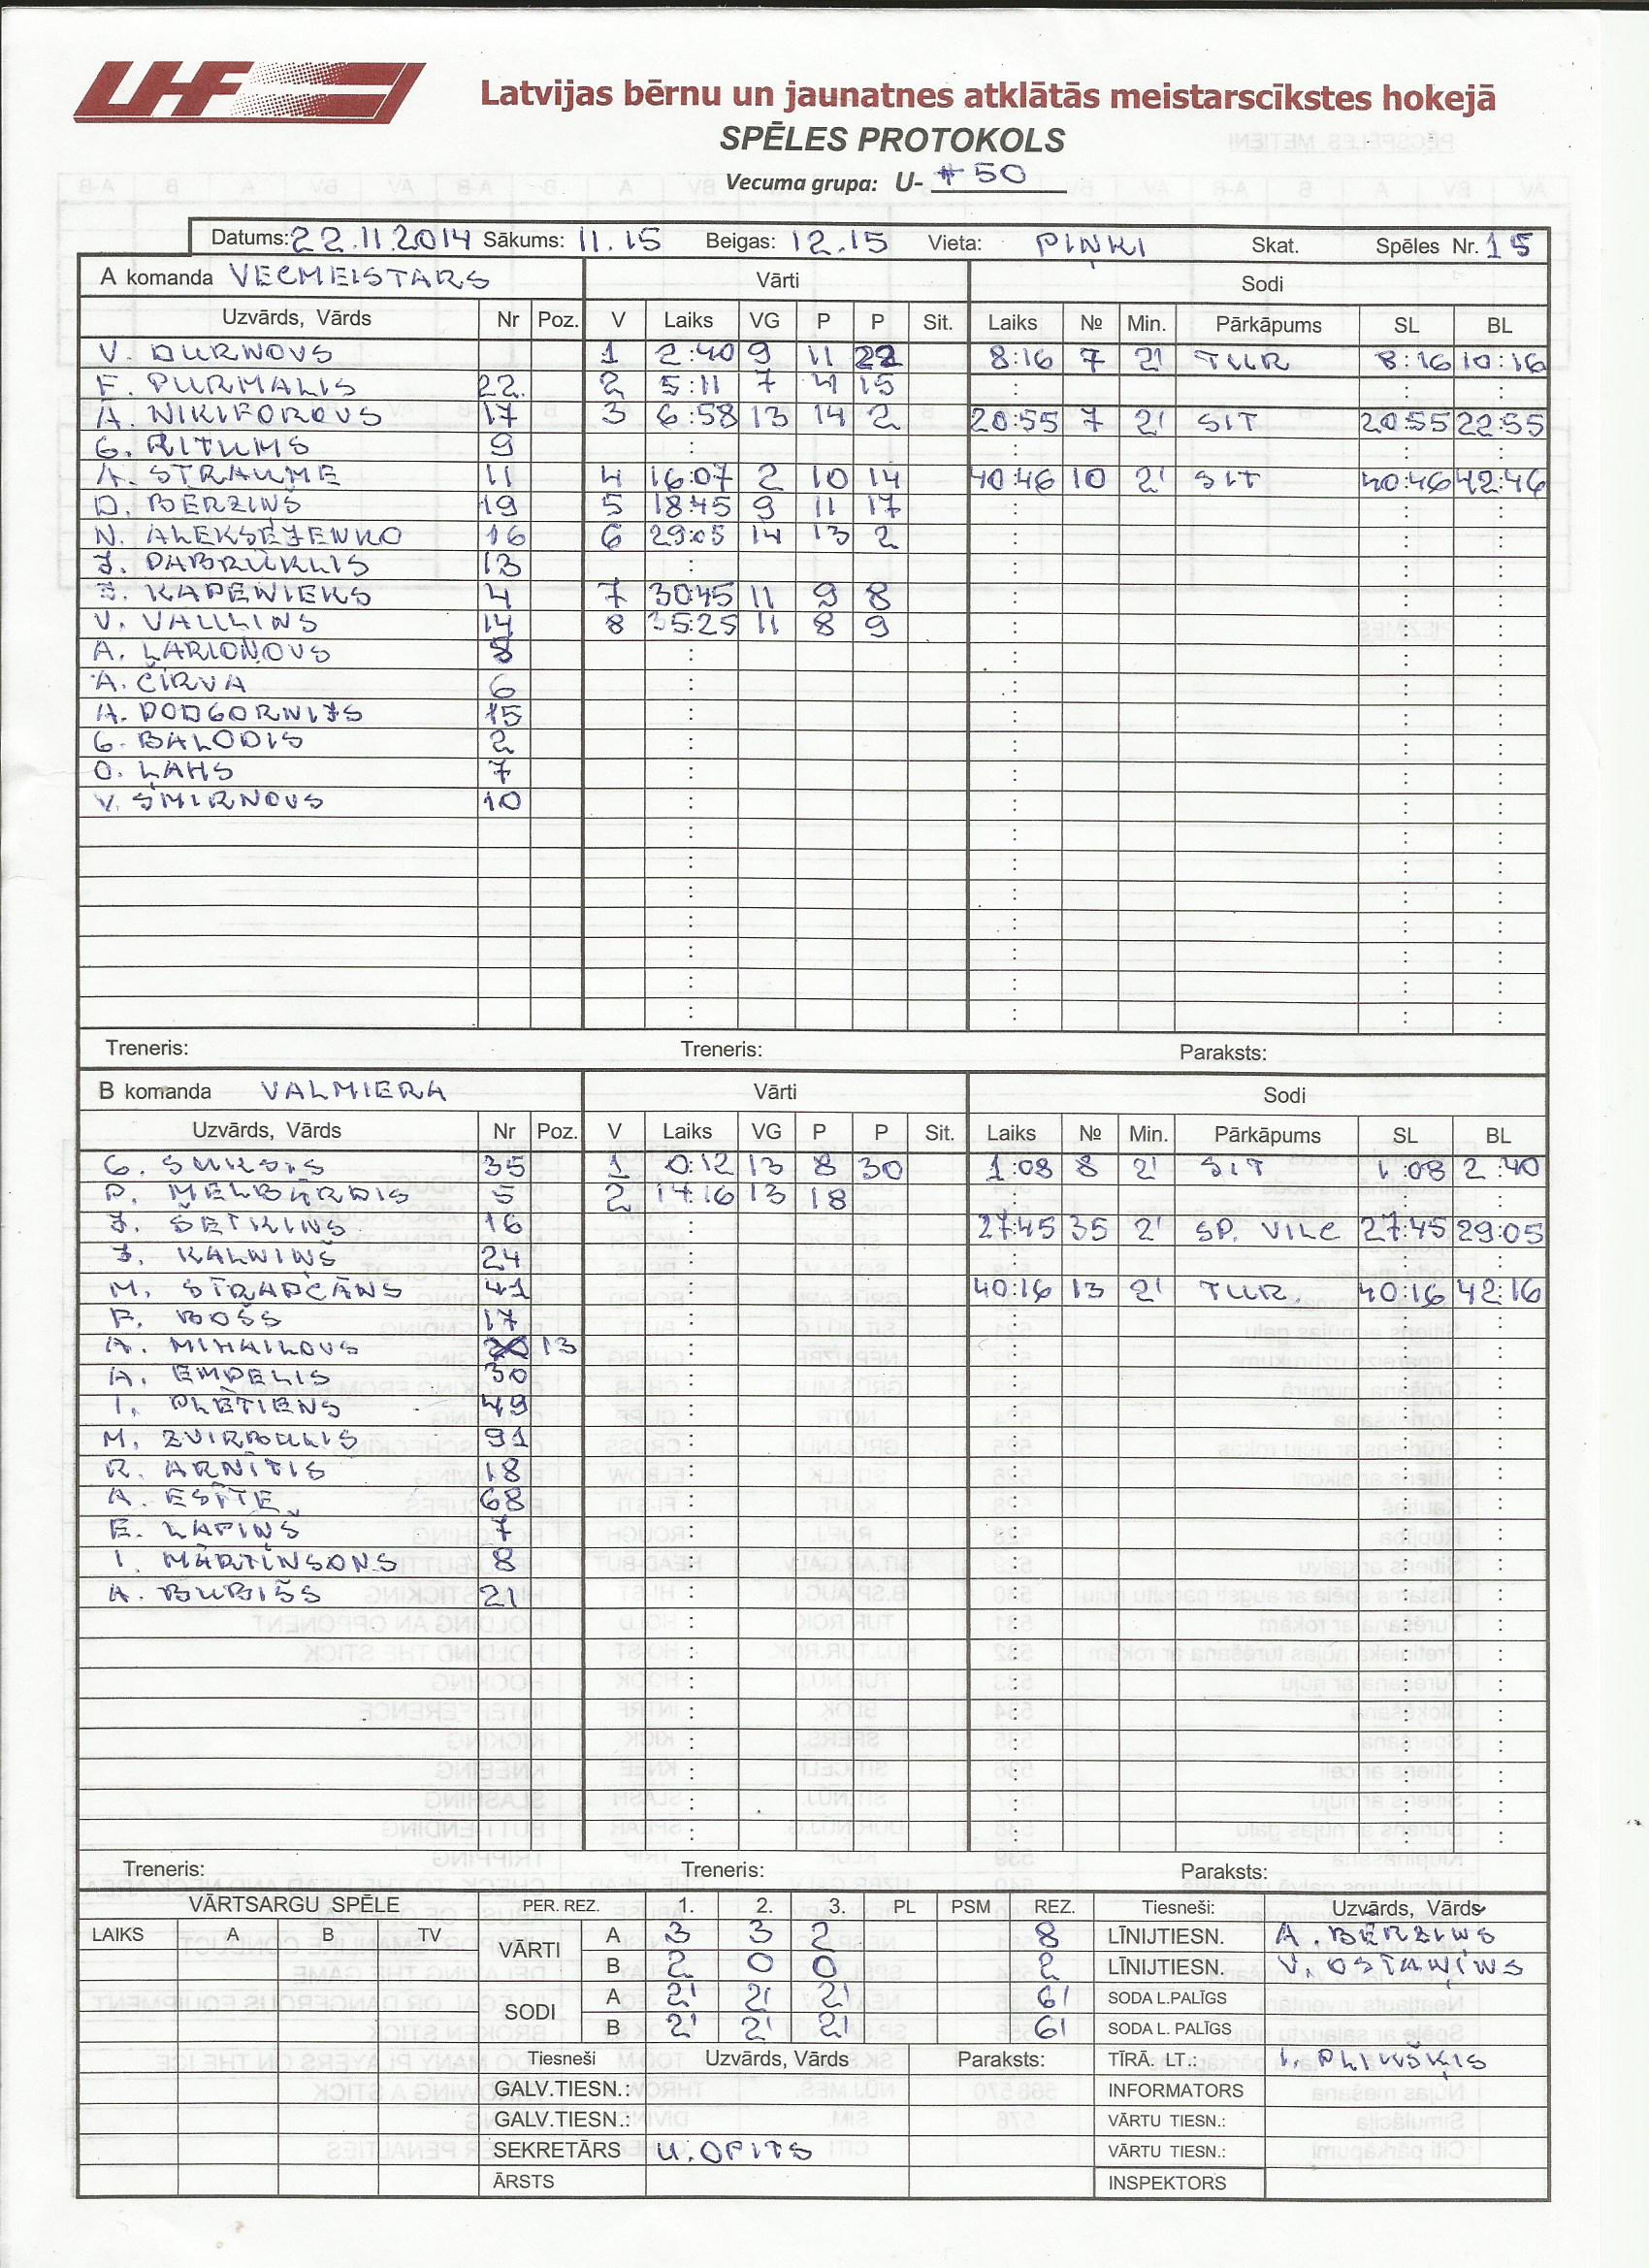 LHF
Latvijas bērnu un jaunatnes atklātās meistarscīkstes hokejā
SPĒLES PROTOKOLS
Vecuma grupa: U- +50
Datums: 22.11.2014 Sākums: 11.15 Beigas: 12.15 Vieta: PIŅĶI Skat. Spēles Nr. 15
A komanda VECMEISTARS Vārti Sodi
Uzvārds, Vārds Nr Poz. V Laiks VG P P Sit. Laiks № Min. Pārkāpums SL BL
V. DURNOVS 1 2:40 9 11 22 8:16 7 2' TUR 8:16 10:16
F. PURMALIS 22. 2 5:11 7 4 15
A. NIKIFOROVS 17 3 6:58 13 14 2 20:55 7 2' SIT 20:55 22:55
G. RITUMS 9
A. STRAUME 11 4 16:07 2 10 14 40:46 10 2' SIT 40:46 42:46
D. BĒRZIŅŠ 19 5 18:45 9 11 17
N. ALEKSEJENKO 16 6 29:05 14 13 2
J. DABRŪKLIS 13
KAPENIEKS 4 7 30:45 11 9 8
V. VAULINS 14 8 35:25 11 8 9
A. LARIONOVS 8
A. CĪRVA 6
A. PODGORNIJS 15
G. BALODIS 2
O. LAHS 7
V. SMIRNOVS 10
Treneris: Treneris: Paraksts:
B komanda VALMIERA Vārti Sodi
Uzvārds, Vārds Nr Poz. V Laiks VG P P Sit. Laiks № Min. Pārkāpums SL BL
G. SUKSIS 35 1 0:12 13 8 30 1:08 8 2' SIT 1:08 2:40
P. MELBĀRDIS 5 2 14:16 13 18
J. ŠETKIŅŠ 16 27:45 35 2' SP. VILC 27:45 29:05
J. KALNIŅŠ 24
M. STRAPCĀNS 41 40:16 13 2' TUR. 40:16 42:16
BOŠS 17
A. MIHAILOVS 13
A. EMPELIS 30
I. PLĒTIENS 49
M. ZVIRBULIS 91
R. ARNĪTIS 18
A. ESĪTE 68
E. LAPIŅŠ 7
I. MĀRTINSONS 8
A. BUBIŠS 21
Treneris: Treneris: Paraksts:
VĀRTSARGU SPĒLE PER. REZ. 1. 2. 3. PL PSM REZ. Tiesneši: Uzvārds, Vārds
LAIKS A B TV VĀRTI A 3 3 2 8 LĪNIJTIESN. A. BĒRZIŅŠ
B 2 0 0 2 LĪNIJTIESN. V. OSTAŅINS
SODI A 2' 2' 2' 6' SODA L.PALĪGS
B 2' 2' 2' 6' SODA L. PALĪGS
Tiesneši Uzvārds, Vārds Paraksts: TĪRĀ. LT.: I. PLIKŠĶIS
GALV.TIESN.: INFORMATORS
GALV.TIESN.: VĀRTU TIESN.:
SEKRETĀRS U. OPITS VĀRTU TIESN.:
ĀRSTS INSPEKTORS